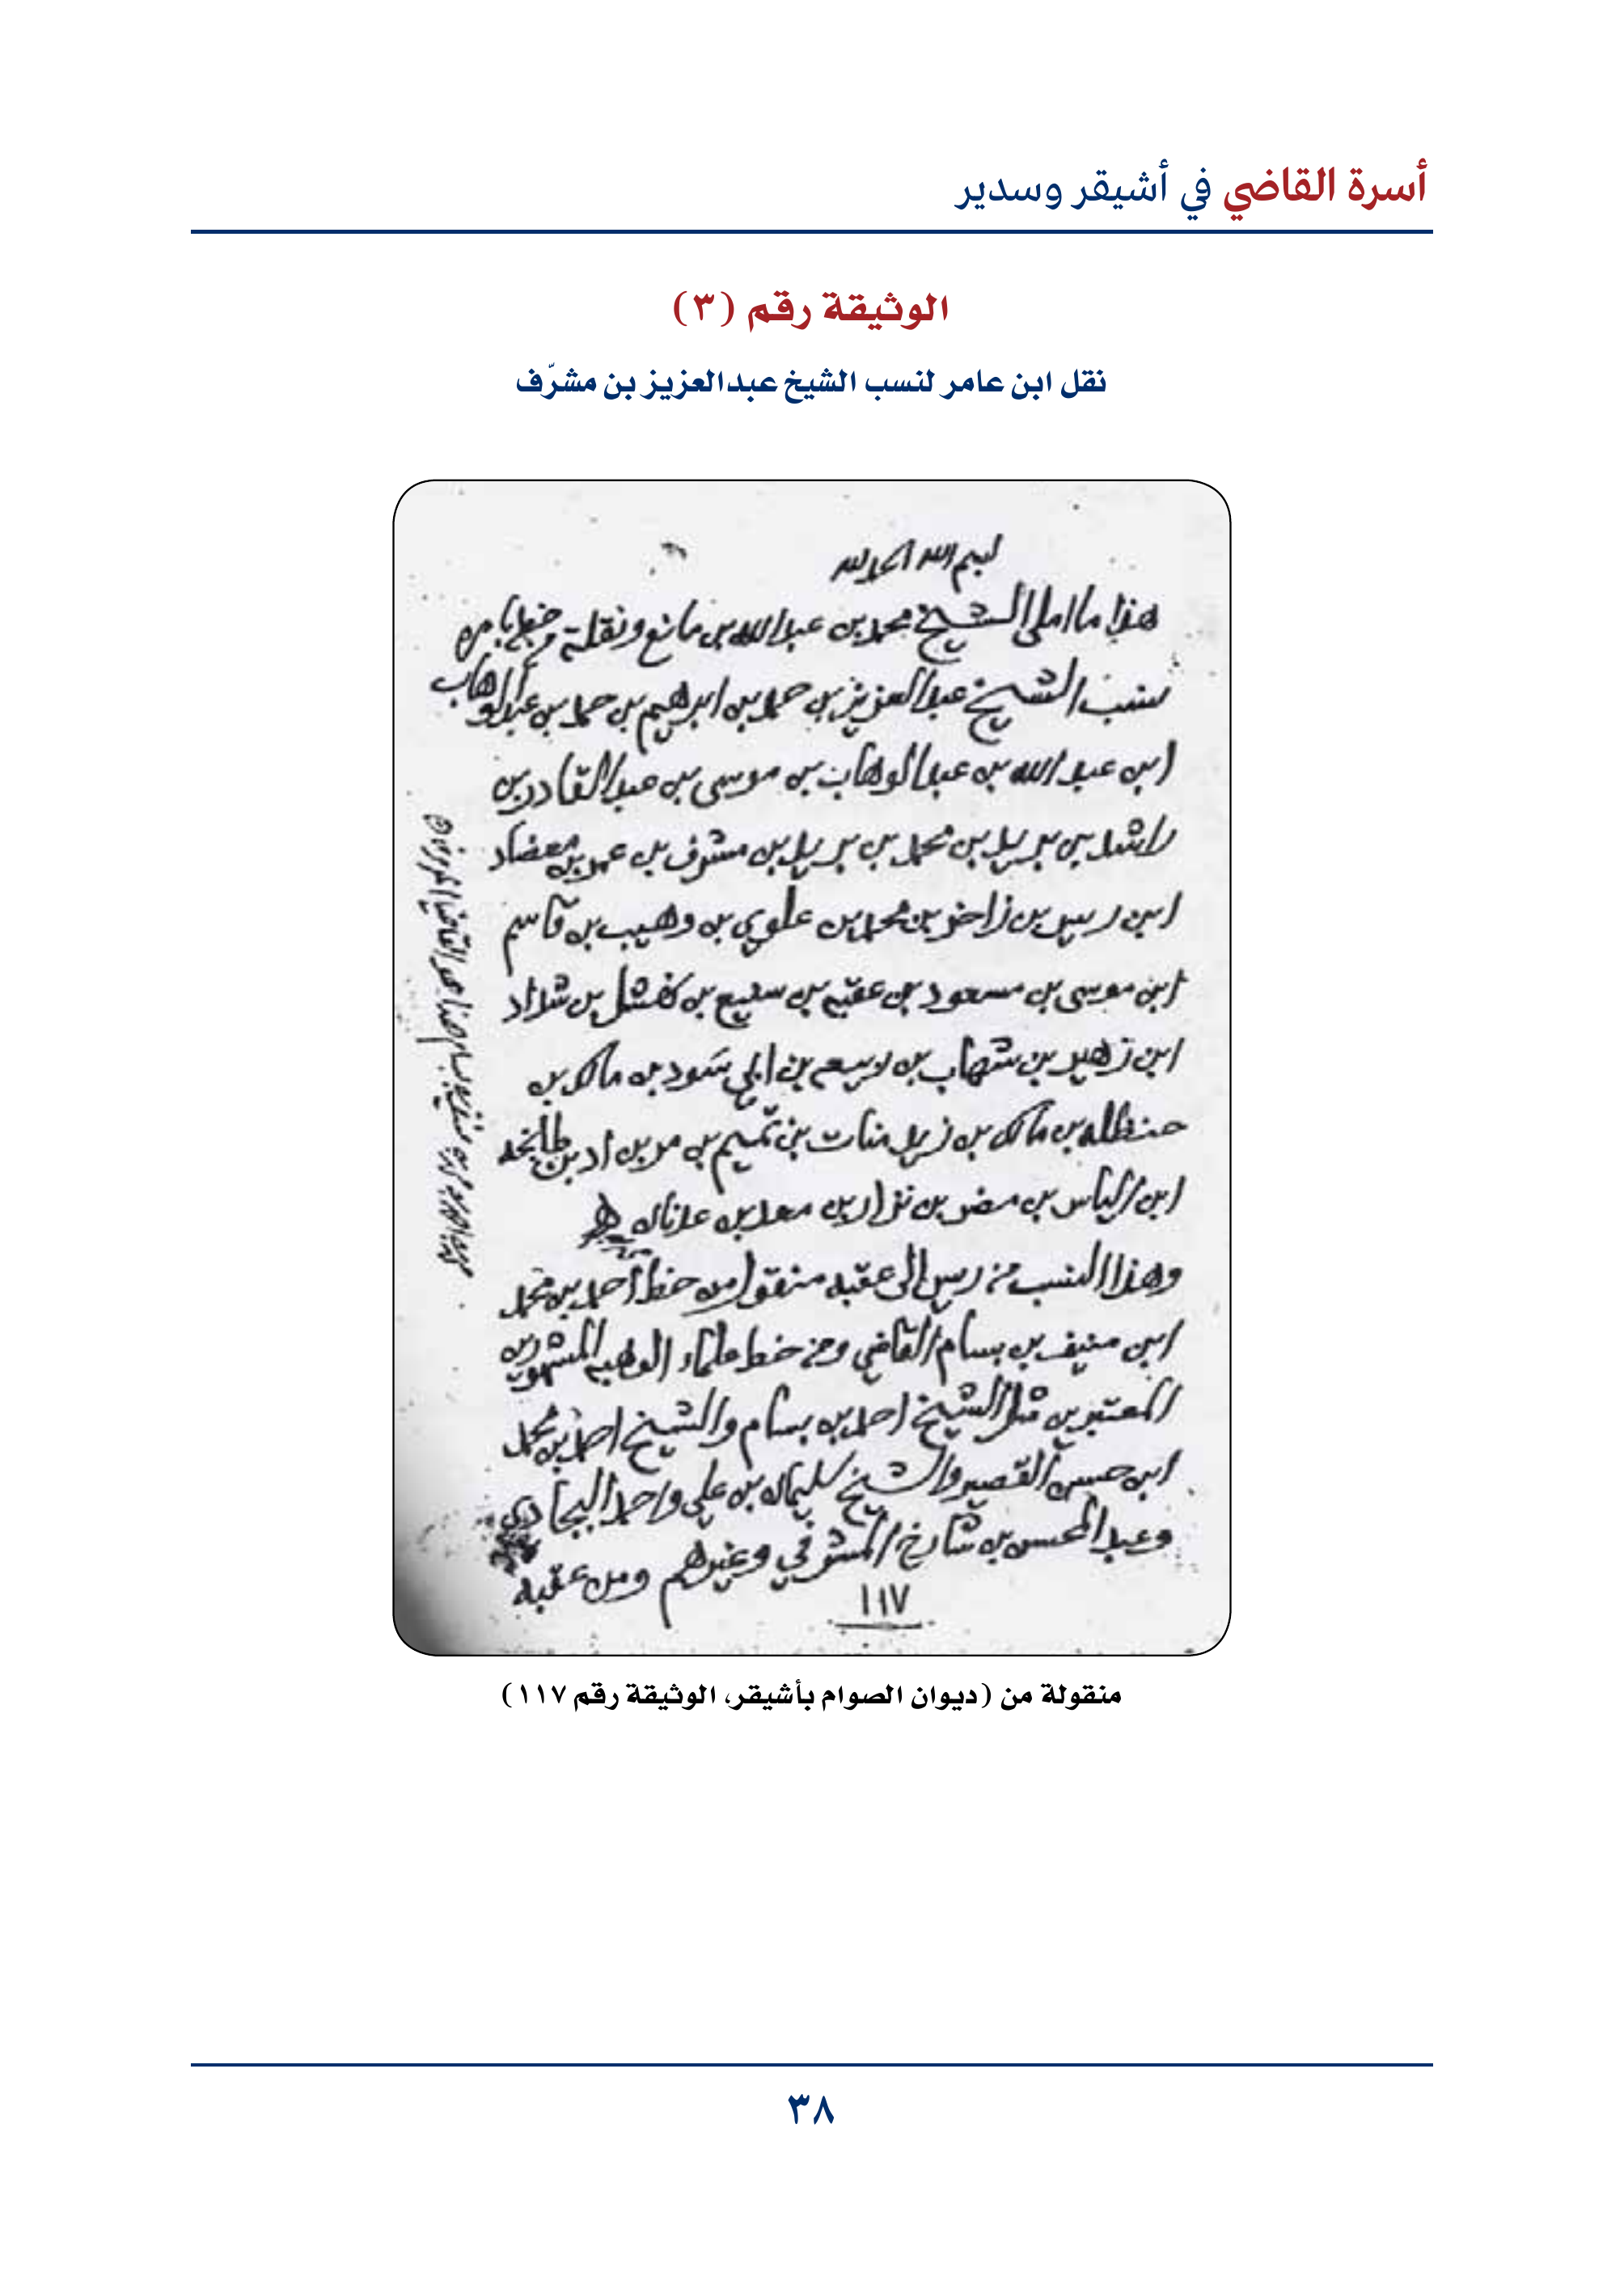 أسرة القاضي في أشيقر وسدير
الوثيقة رقم (٣)
نقل ابن عامر لنسب الشيخ عبدالعزيز بن مشرّف
بسم الله الحمد لله
هذا ما املى الشيخ محمد بن عبدالله بن مانع ونقلة
نسب الشيخ عبدالعزيز بن حمد بن ابرهيم بن حمد بن عبدالوهاب
ابن عبدالله بن عبدالوهاب بن موسى بن عبدالقادر بن
راشد بن بريد بن محمد بن بريد بن مشرف بن عمر بن معضاد
ابن ريس بن زاخر بن محمد بن علوي بن وهيب بن قاسم
ابن موسى بن مسعود بن عقبه بن سنيع بن نهشل بن شداد
ابن زهير بن شهاب بن ربيعه بن ابي سود بن مالك بن
حنظله بن مالك بن زيد منات بن تميم بن مر بن اد بن طابخه
ابن الياس بن مضر بن نزار بن معد بن عدنان
وهذا النسب من ريس الى عقبه منقول من خط أحمد بن محمد
ابن منيف بن بسام القاضي ومن خط علماء الوهبه المشهورين
المعتبرين مثل الشيخ احمد بن بسام والشيخ احمد بن محمد
ابن حسن القصير والشيخ سليمان بن علي واحمد البجادي
وعبدالمحسن بن شارخ المشرفي وغيرهم ومن عقبه
١١٧
منقولة من (ديوان الصوام بأشيقر، الوثيقة رقم ١١٧)
٣٨